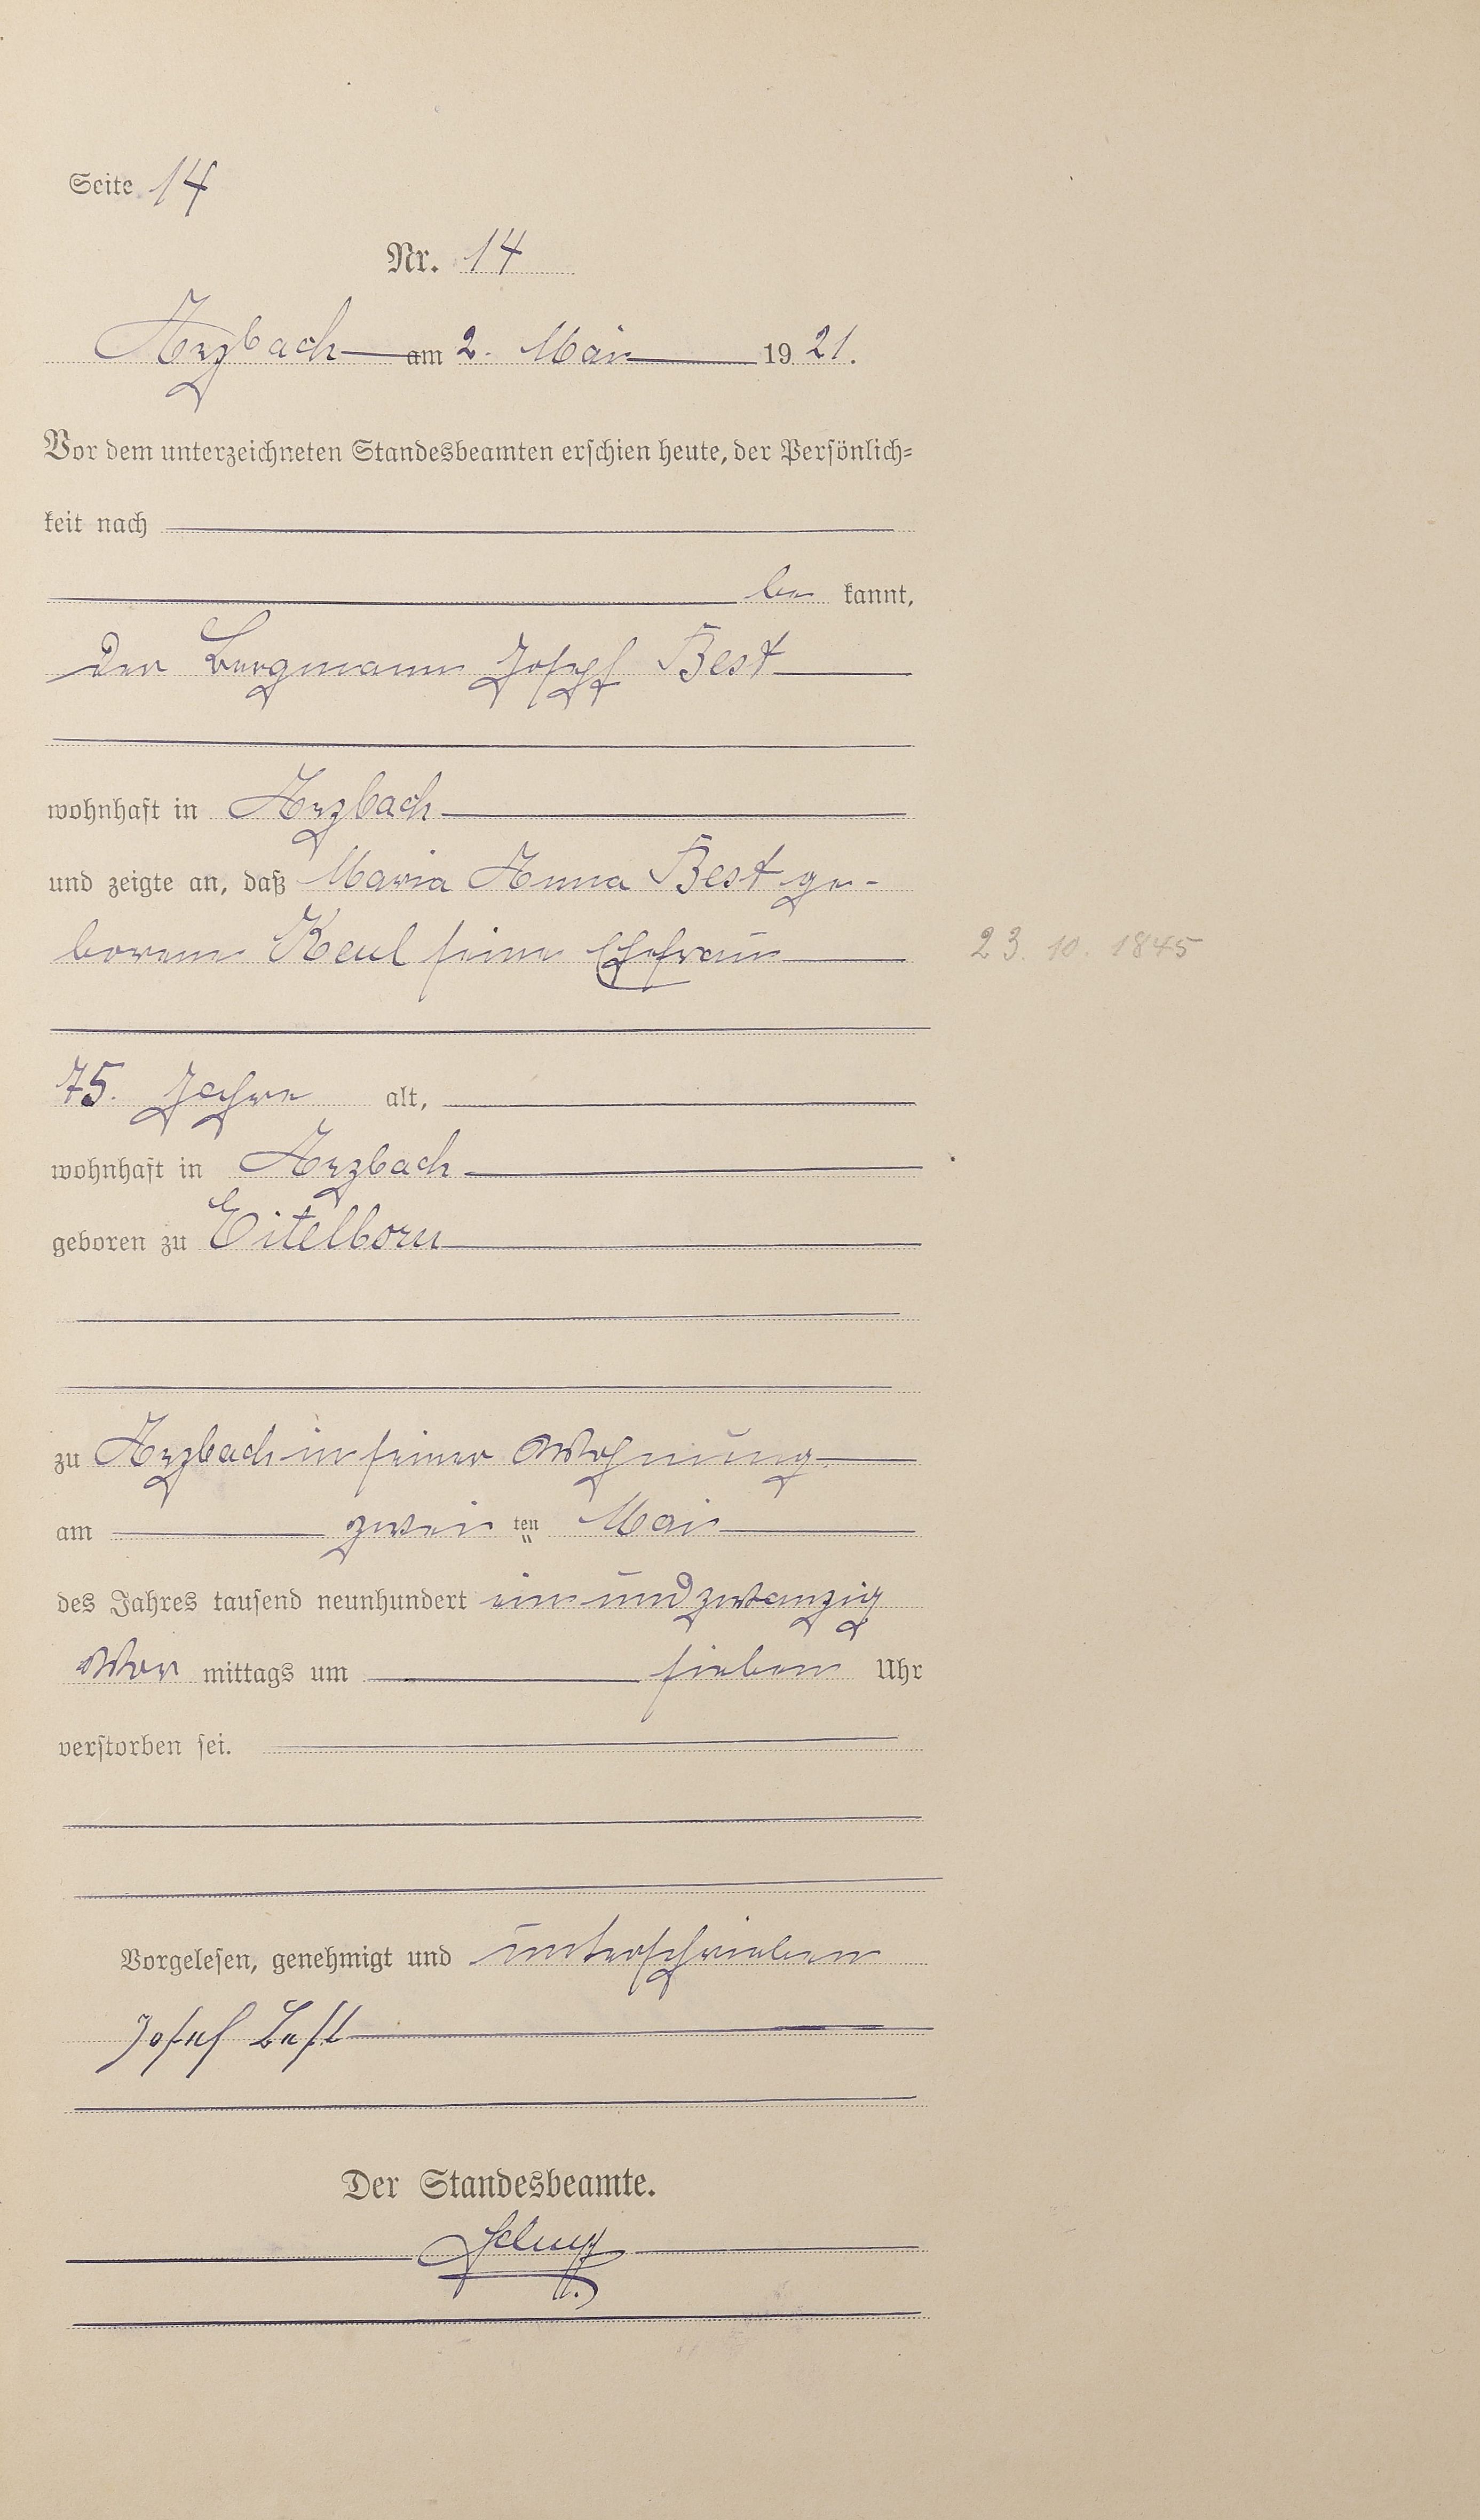 Seite 14
Nr. 14
Arzbach am 2. Mai 1921.
Vor dem unterzeichneten Standesbeamten erschien heute, der Persönlich-
keit nach
be kannt,
der Bergmann Joseph Best
wohnhaft in Arzbach
und zeigte an, daß Maria Anna Best ge-
borene Keul seine Ehefrau
23. 10. 1845
75. Jahre alt,
wohnhaft in Arzbach
geboren zu Eitelborn
zu Arzbach in seiner Wohnung
am zwei ten Mai
des Jahres tausend neunhundert ein und zwanzig
Vor mittags um sieben Uhr
verstorben sei.
Vorgelesen, genehmigt und unterschrieben
Josef Best
Der Standesbeamte.